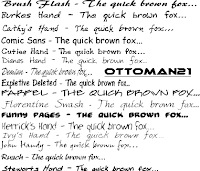 Brush Flash - The quick brown fox...
Burkes Hand - The quick brown fox...
Cathy's Hand - The quick brown fox...
Comic Sans - The quick brown fox...
Cutine Hand - The quick brown fox...
Dianes Hand - The quick brown fox...
Domian - The quick brown fox... OTTOMAN21
Expletive Deleted - The quick brown fox...
FARREL - THE QUICK BROWN FOX...
Florentine Swash - The quick brown fox...
FUNNY PAGES - THE QUICK BROWN FOX...
Herrick's Hand - The quick brown fox...
Ivy's Hand - The quick brown fox...
John Handy - The quick brown fox...
Ruach - The quick brown fox...
Stewarts Hand - The quick brown fox...